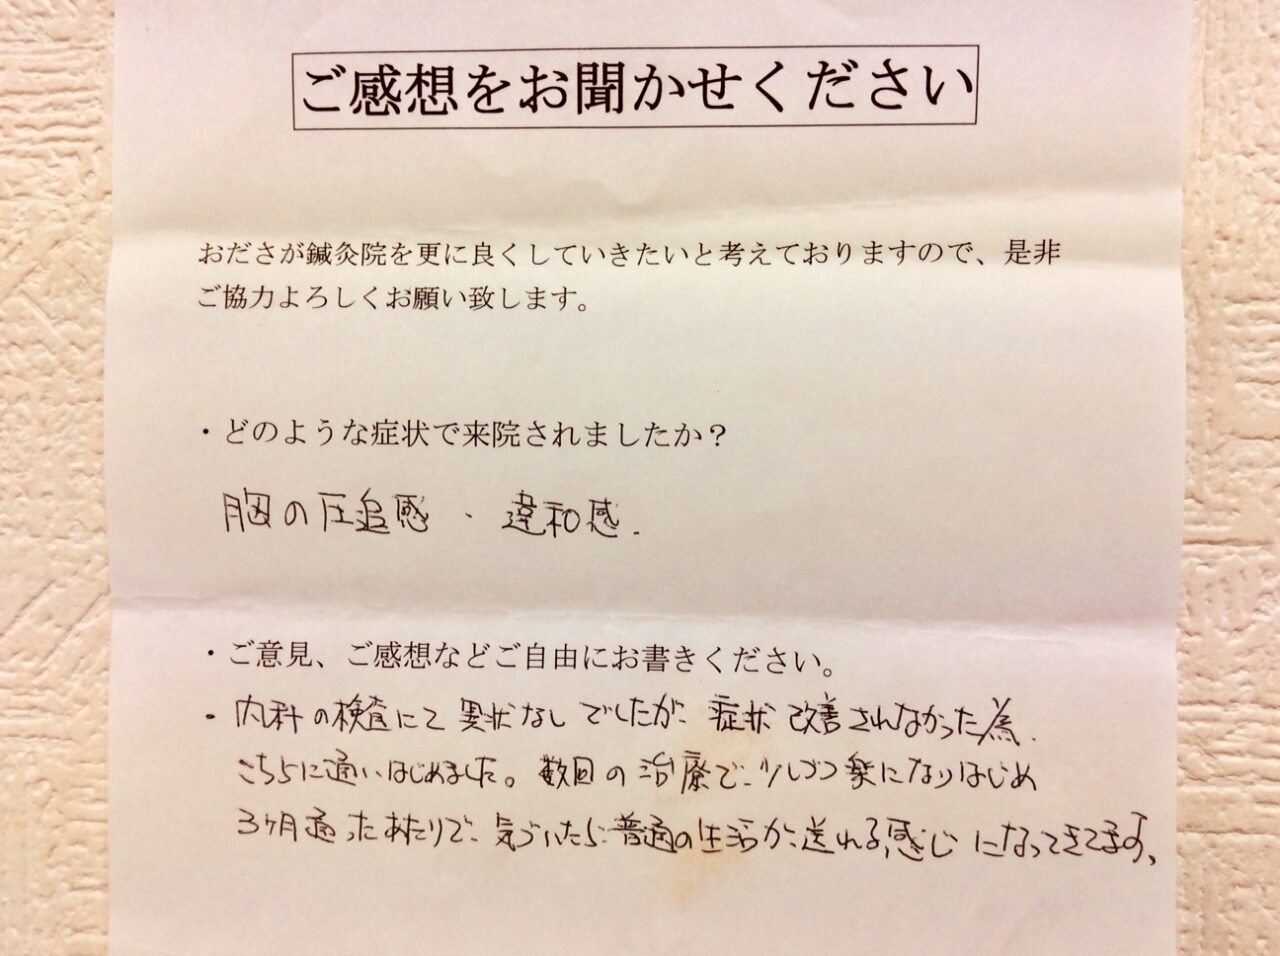 ご感想をお聞かせください
おださが鍼灸院を更に良くしていきたいと考えておりますので、是非
ご協力よろしくお願い致します。
・どのような症状で来院されましたか？
胸の圧迫感・違和感.
・ご意見、ご感想などご自由にお書きください。
・内科の検査にて異状なしでしたが、症状改善されなかった為、
こちらに通いはじめました。数回の治療で、少しづつ楽になりはじめ
3ヶ月通ったあたりで、気づいたら普通の生活が送れる感じになってきてます、